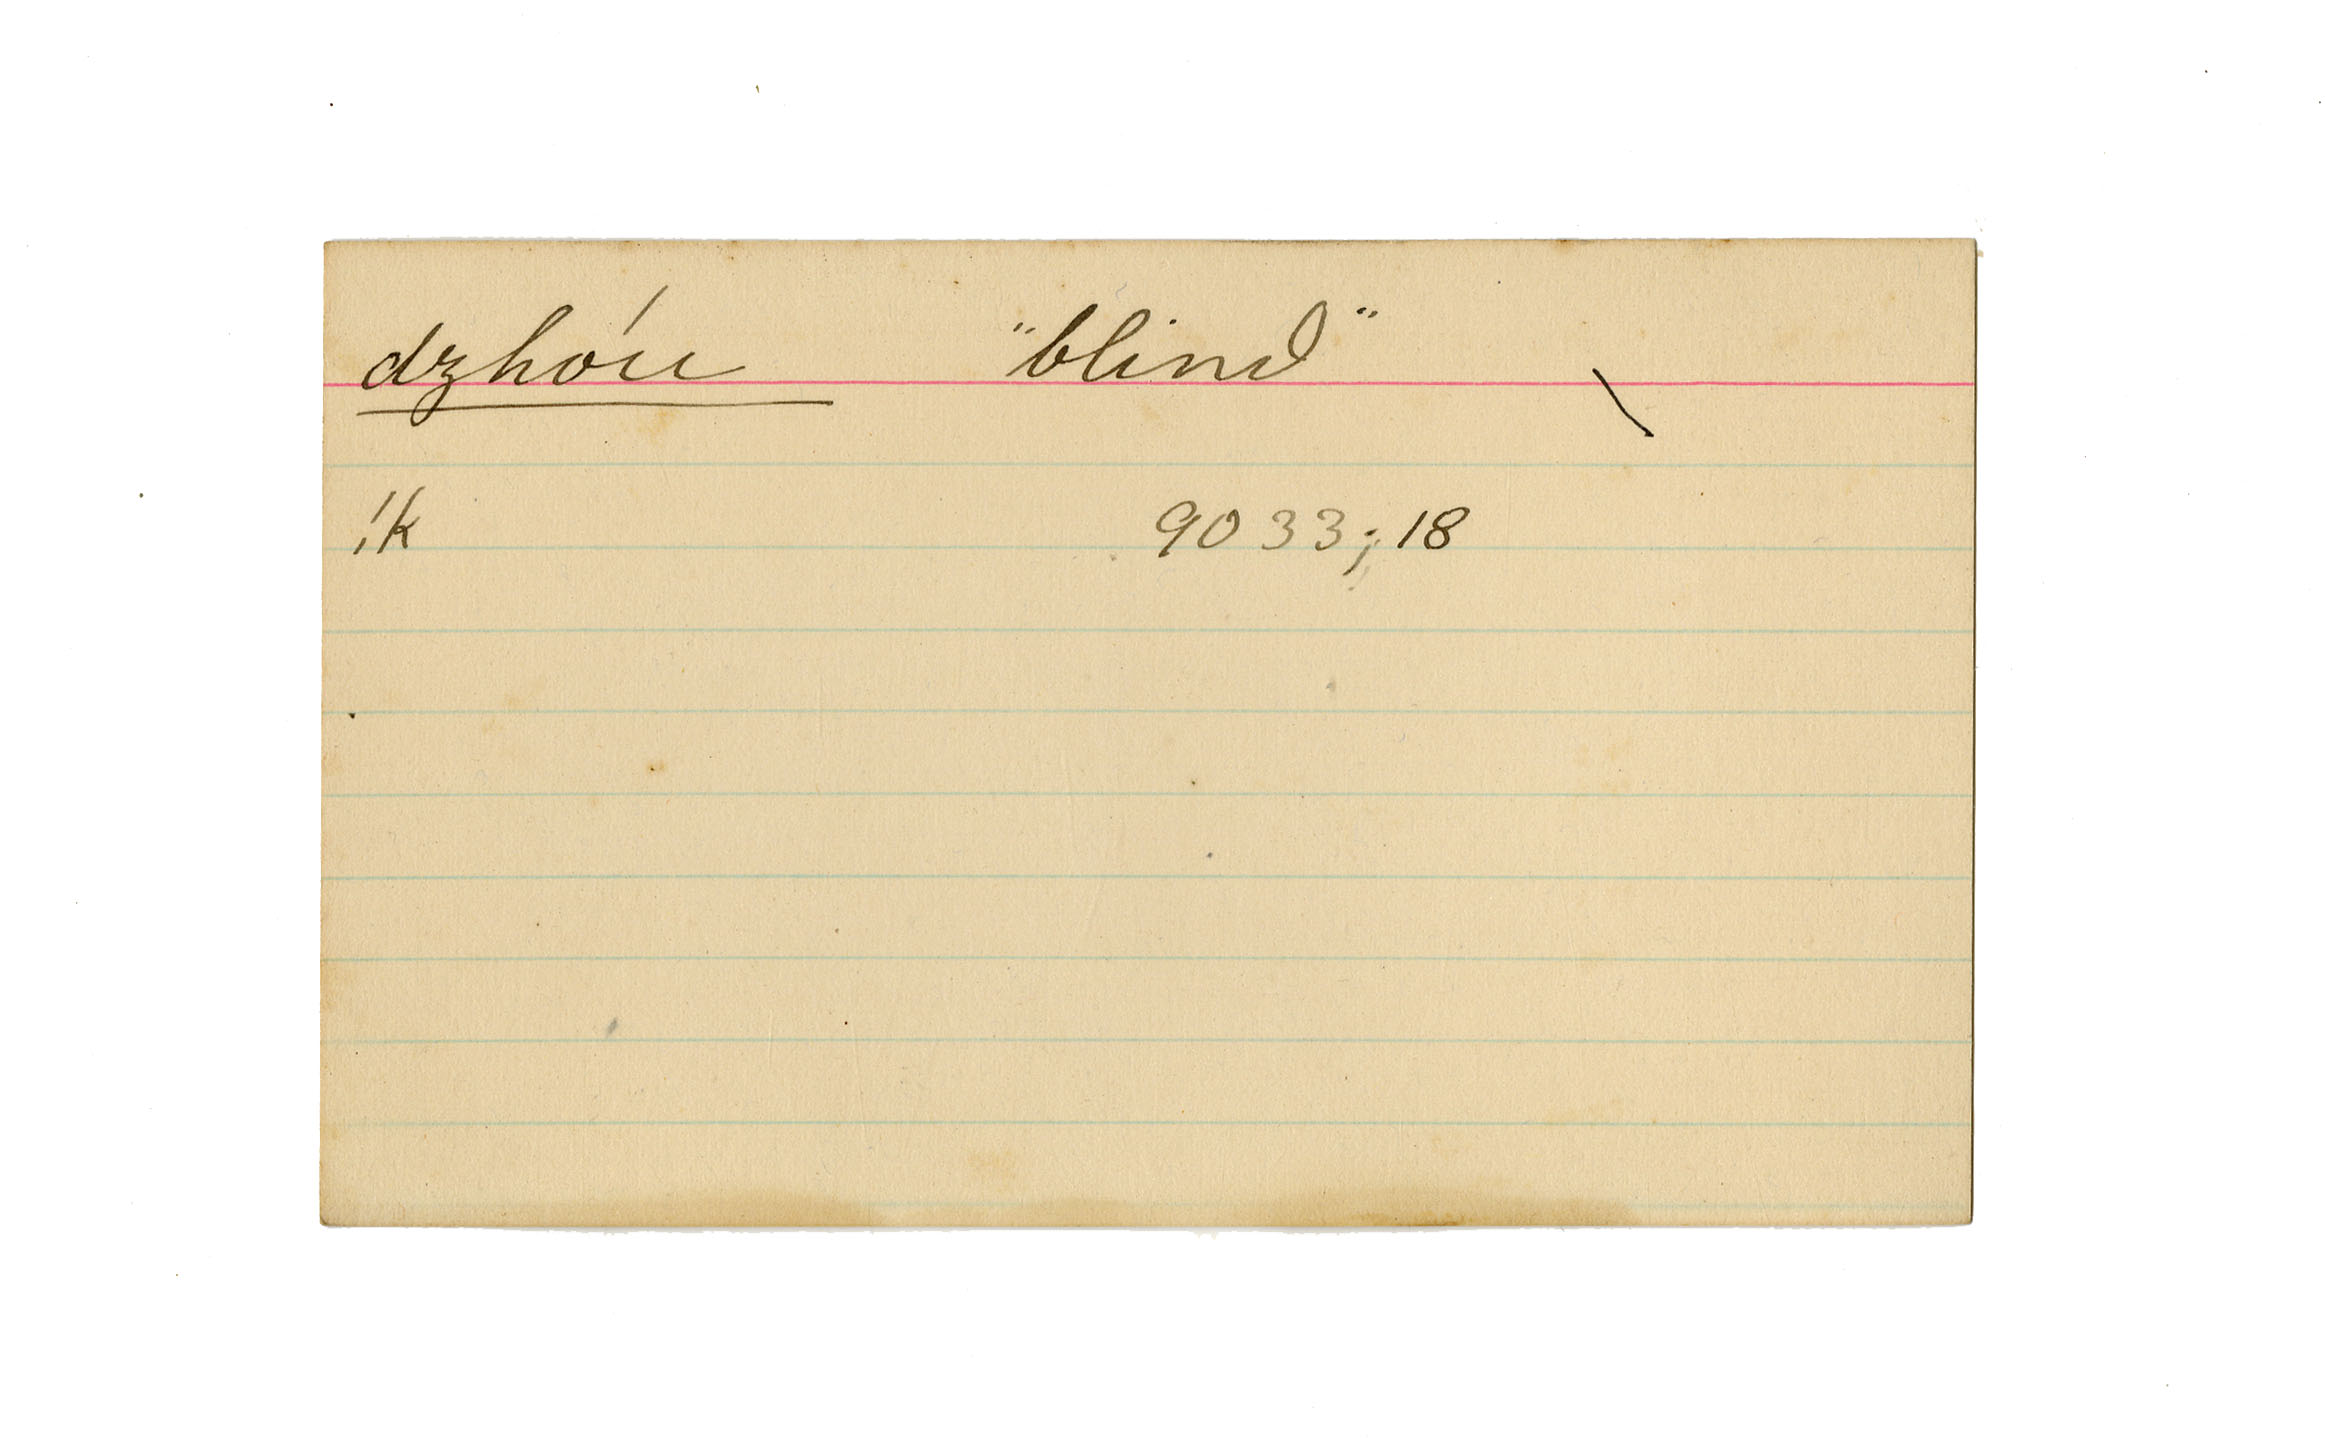 dzhóu "blind" \
!k 9033; 18